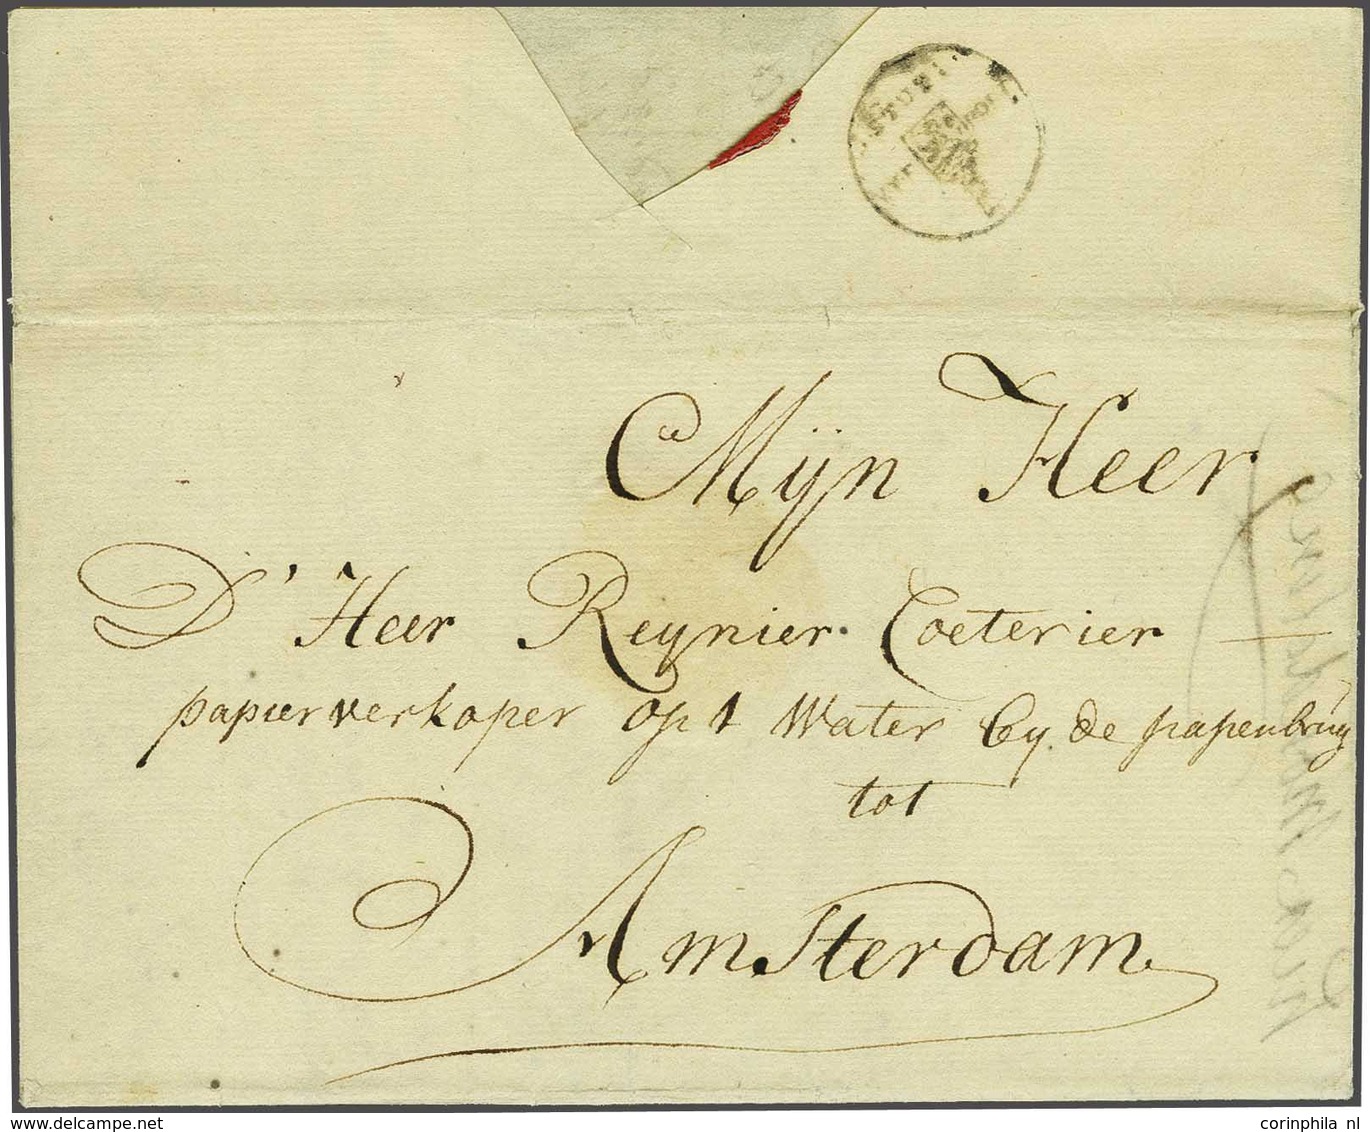 Mijn Heer
D' Heer Reynier Coeterier
papierverkoper op t Water by de papenbrug
tot
Amsterdam
corinphila nl